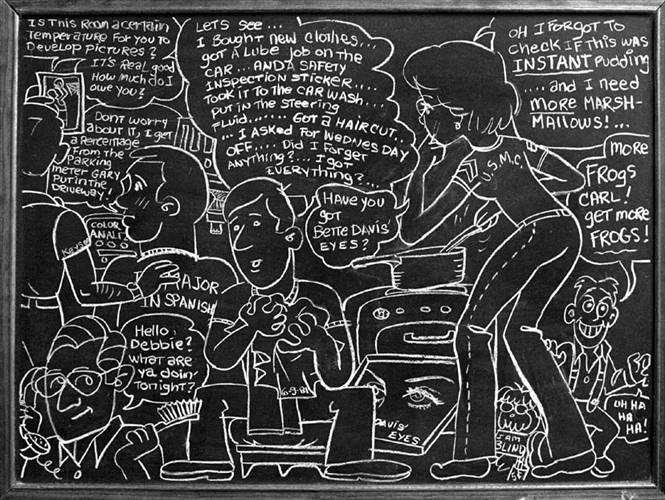 IS THIS ROOM A CERTAIN
TEMPERATURE FOR YOU TO
DEVELOP PICTURES?
IT'S REAL GOOD
HOW MUCH DO I
OWE YOU?
DON'T WORRY
ABOUT IT, I GET
A PERCENTAGE
FROM THE
PARKING
METER GARY
PUT IN THE
DRIVEWAY!
LETS SEE...
I BOUGHT NEW CLOTHES...
GOT A LUBE JOB ON THE
CAR... AND A SAFETY
INSPECTION STICKER....
TOOK IT TO THE CAR WASH....
PUT IN THE STEERING
FLUID...... GOT A HAIRCUT..
... I ASKED FOR WEDNESDAY
OFF.... DID I FORGET
ANYTHING?... I GOT
EVERYTHING?...
OH I FORGOT TO
CHECK IF THIS WAS
INSTANT PUDDING
....AND I NEED
MORE MARSH-
MALLOWS!...
MORE
FROGS
CARL!
GET MORE
FROGS!
HAVE YOU
GOT
BETTE DAVIS'
EYES?
U.S.M.C.
COLOR
ANALI
MAJOR
IN SPANISH
HELLO,
DEBBIE?
WHAT ARE
YA DOIN'
TONIGHT?
DAVIS'
EYES
I AM
BLIND
UH HA
HA HA
HA!